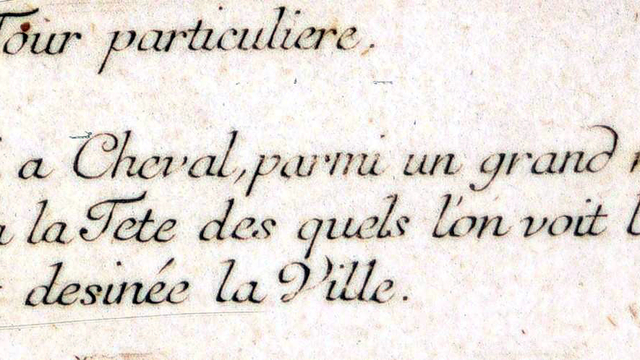 Tour particuliere,
a Cheval, parmi un grand
a la Tete des quels l'on voit
desinée la Ville.